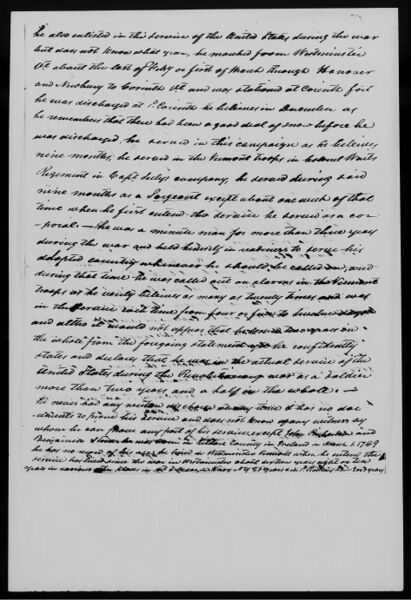 he also enlisted in the service of the United States during the war
but does not know what year, he marched from Westminster
Vt about the last of Feby or first of March through Hanover
and Newbury to Corinth Vt and was stationed at Corinth fort
he was discharged at Corinth he believes in December as
he remembers that there had been a good deal of snow before he
was discharged, he served in this campaign as he believes
nine months, he served in the Vermont troops in Colonel Waits
Regiment in Capt Sealys company, he served during said
nine months as a Sergeant except about one week of that
time when he first entered the service he served as a cor-
poral — He was a minute man for more than three years
during the war and held himself in readiness to serve his
adopted country whenever he should be called on, and
during that time he was called out on alarms in the Vermont
troops as he verily believes as many as twenty times and was
in the service each time from four or five to twelve days
and altho it would not appear that he served two years on
the whole from the foregoing statement yet he confidently
states and declares that he was in the actual service of the
United States during the Revolutionary war as a soldier
more than two years and a half in the whole. —
He never had any written discharge at any time & has no doc-
uments to prove his service and does not know of any witness by
whom he can prove any part of his service except John and
Benjamin he was born in County in Ireland in March 1, 1749
he has no record of his age, he lived in Westminster Vermont when he entered the
service has lived since the war in Westminster about sixteen years eight or ten
years in various places in years in N.Y. 27 years